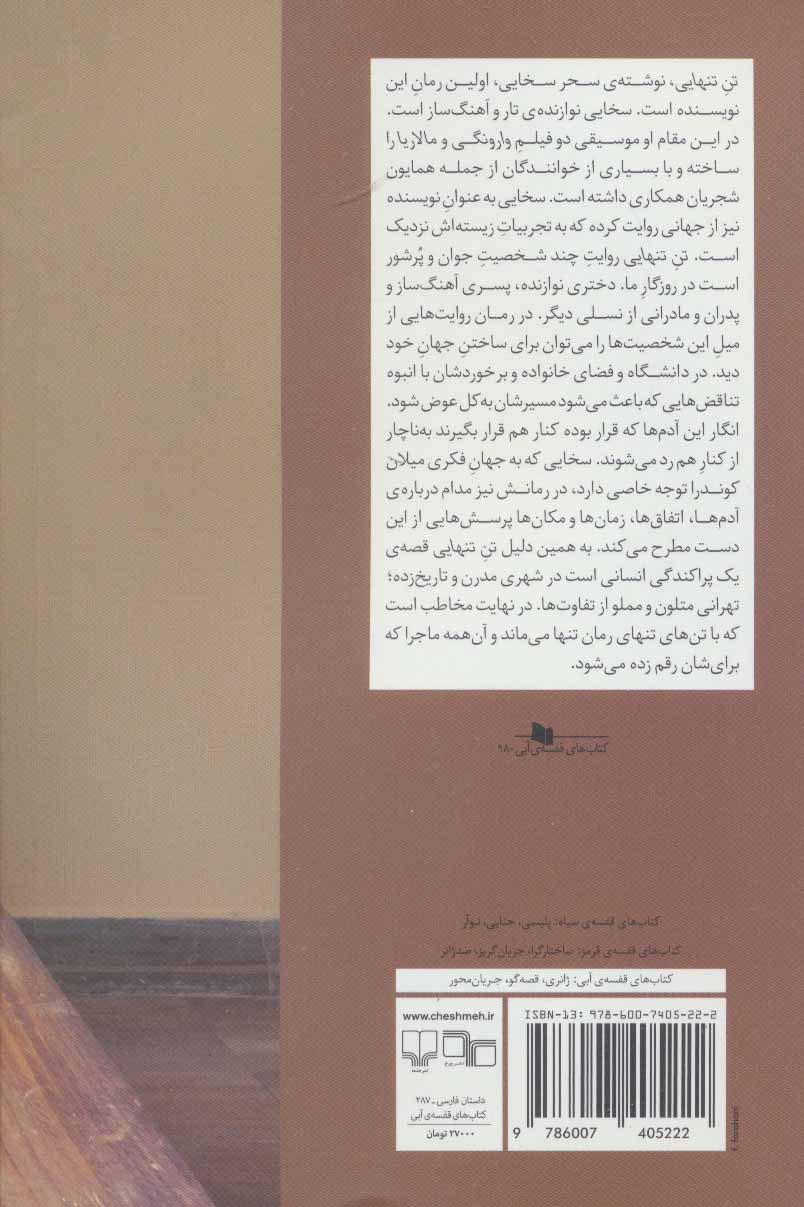 تنِ تنهایی، نوشته‌ی سحر سخایی، اولین رمانِ این
نویسنده است. سخایی نوازنده‌ی تار و آهنگ‌ساز است.
در این مقام او موسیقی دو فیلمِ وارونگی و مالاریا را
ساخته و با بسیاری از خوانندگان از جمله همایون
شجریان همکاری داشته است. سخایی به عنوانِ نویسنده
نیز از جهانی روایت کرده که به تجربیاتِ زیسته‌اش نزدیک
است. تنِ تنهایی روایتِ چند شخصیتِ جوان و پُرشور
است در روزگارِ ما. دختری نوازنده، پسری آهنگ‌ساز و
پدران و مادرانی از نسلی دیگر. در رمان روایت‌هایی از
میلِ این شخصیت‌ها را می‌توان برای ساختنِ جهانِ خود
دید. در دانشگاه و فضای خانواده و برخوردشان با انبوه
تناقض‌هایی که باعث می‌شود مسیرشان به کل عوض شود.
انگار این آدم‌ها که قرار بوده کنار هم قرار بگیرند به‌ناچار
از کنارِ هم رد می‌شوند. سخایی که به جهانِ فکری میلان
کوندرا توجه خاصی دارد، در رمانش نیز مدام درباره‌ی
آدم‌ها، اتفاق‌ها، زمان‌ها و مکان‌ها پرسش‌هایی از این
دست مطرح می‌کند. به همین دلیل تنِ تنهایی قصه‌ی
یک پراکندگی انسانی است در شهری مدرن و تاریخ‌زده؛
تهرانی متلون و مملو از تفاوت‌ها. در نهایت مخاطب است
که با تن‌های تنهای رمان تنها می‌ماند و آن‌همه ماجرا که
برای‌شان رقم زده می‌شود.
کتاب‌های قفسه‌ی آبی -۹۸
کتاب‌های قفسه‌ی سیاه: پلیسی، جنایی، نوآر
کتاب‌های قفسه‌ی قرمز: ساختارگرا، جریان‌گریز، ضدژانر
کتاب‌های قفسه‌ی آبی: ژانری، قصه‌گو، جریان‌محور
ISBN-13: 978-600-7405-22-2
9 786007 405222
www.cheshmeh.ir
دفتر چرخ
نشر چشمه
داستان فارسی ـ ۲۸۷
کتاب‌های قفسه‌ی آبی
۲۷۰۰۰ تومان
f. farahani